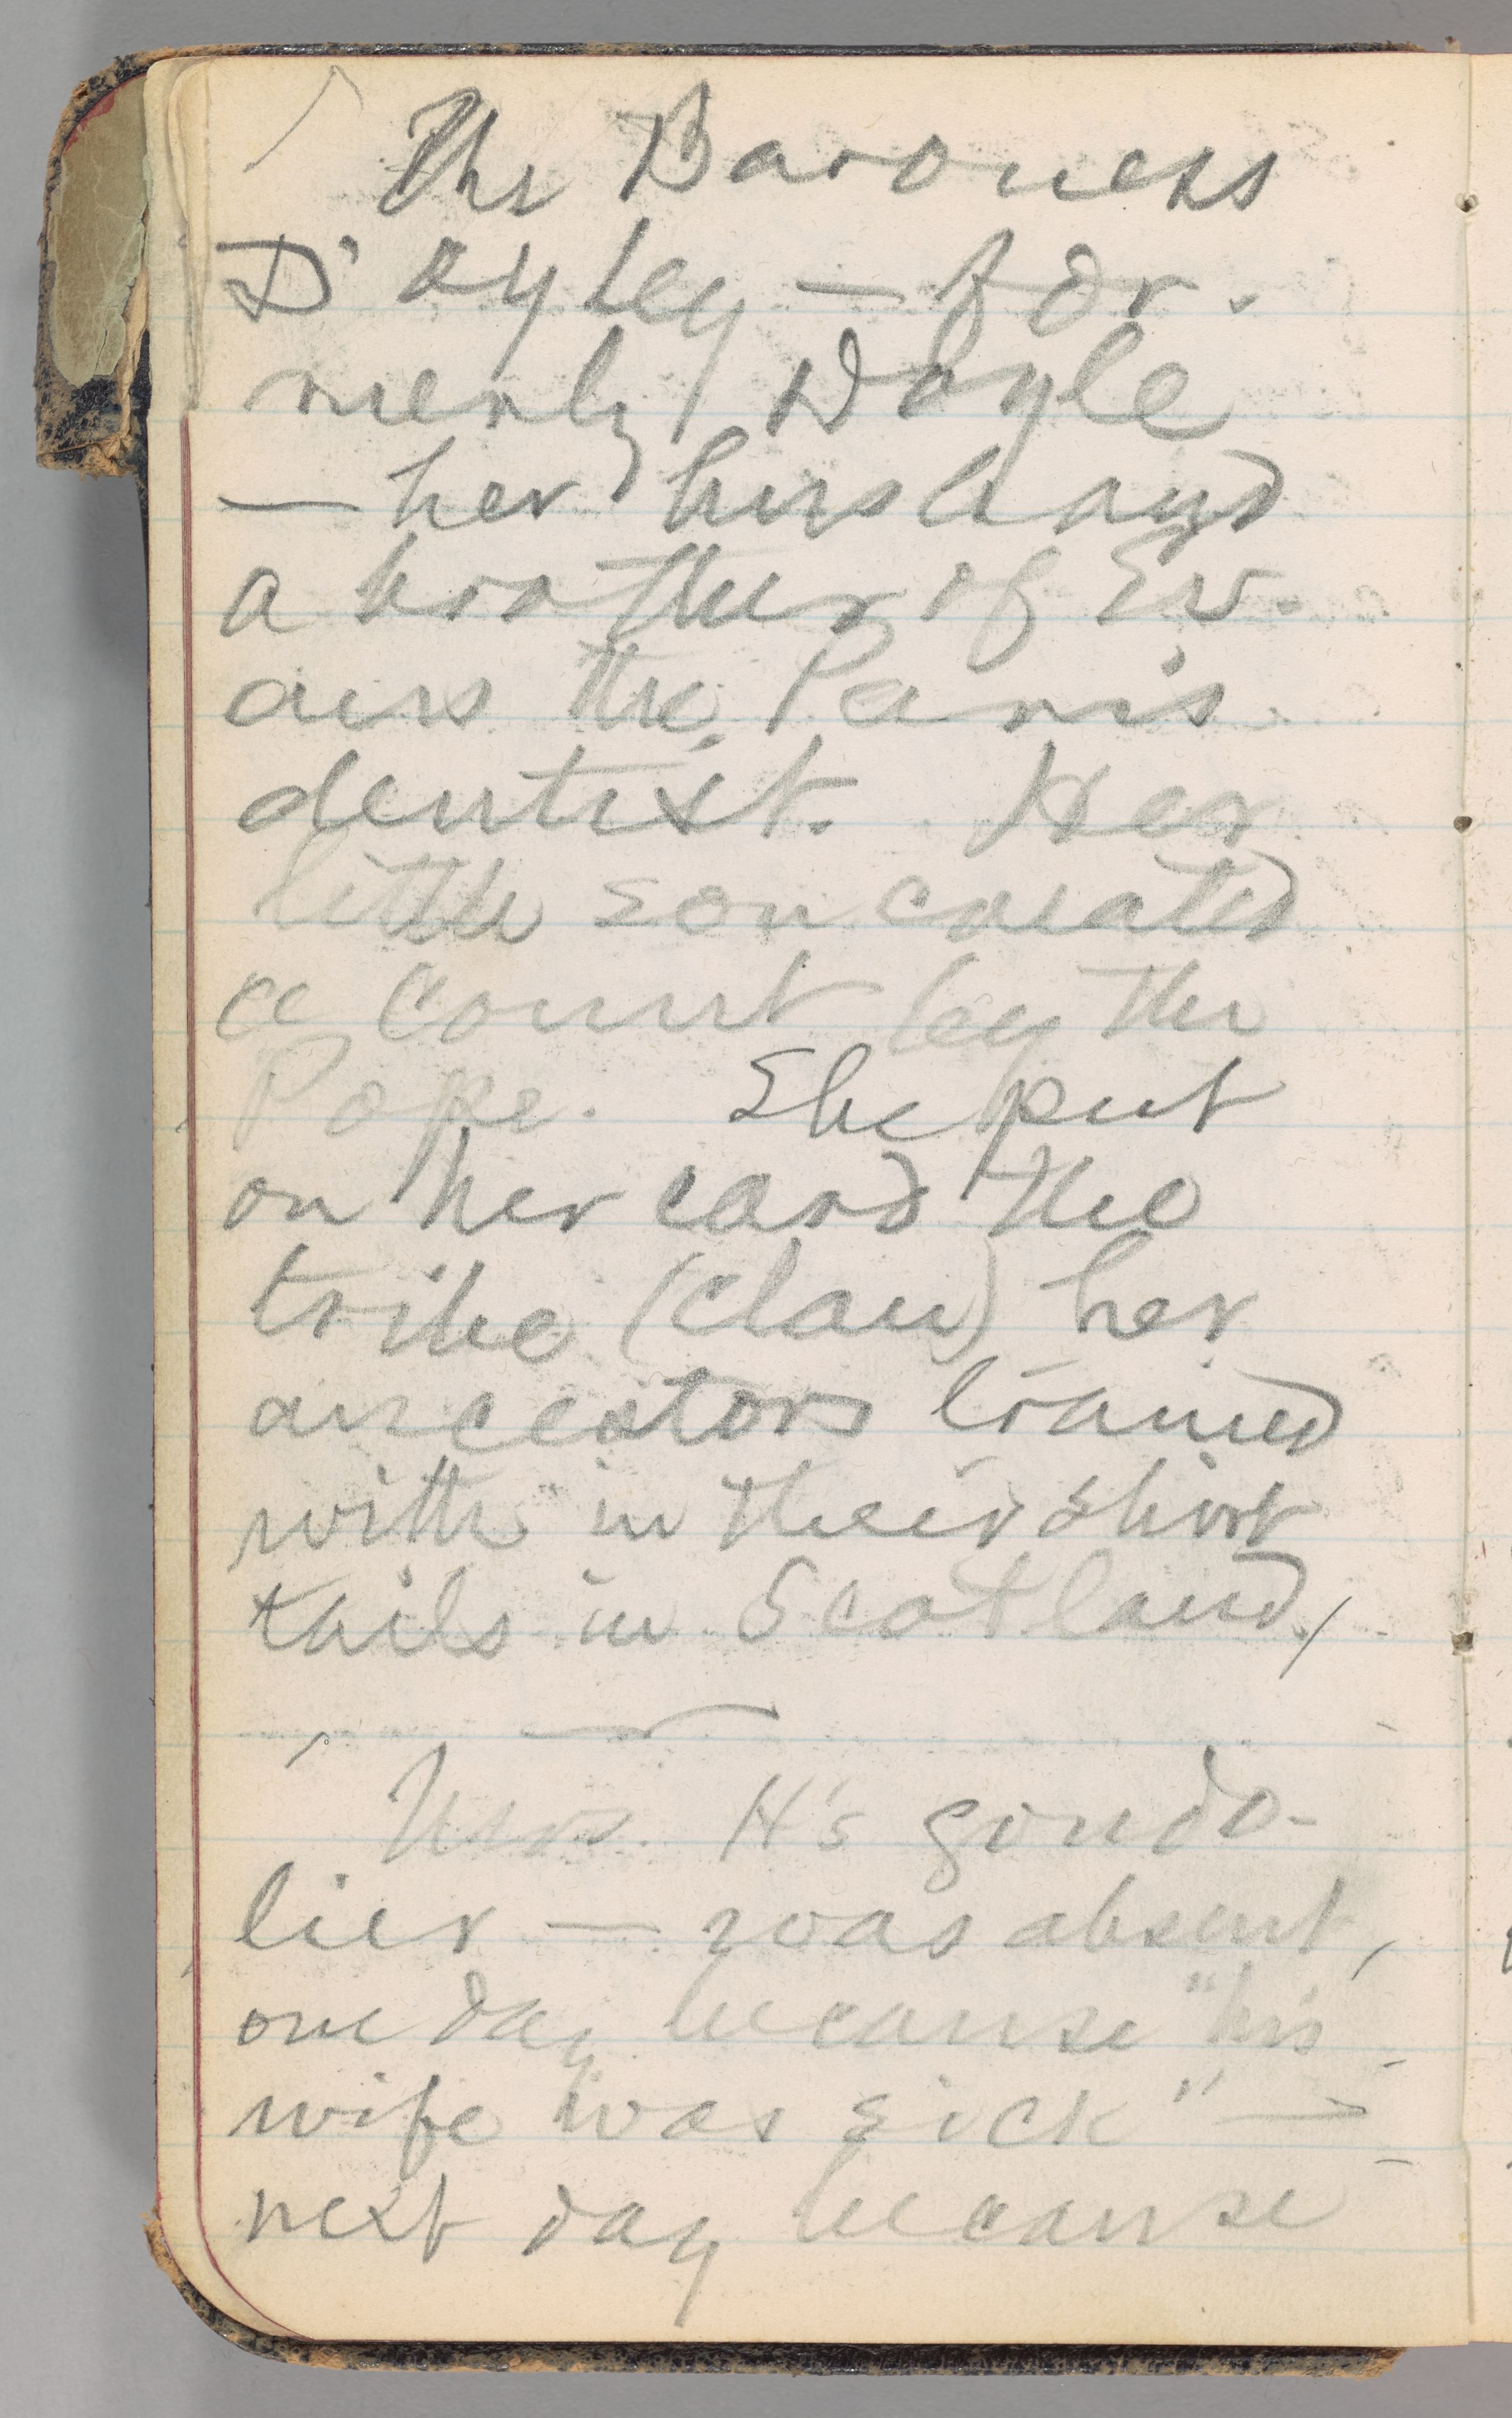 The Baroness
D'oyley — for-
merly Doyle
— her husband
a brother of Ev-
ans the Paris
dentist. Her
little son created
a Count by the
Pope. She put
on her card the
tribe (clan) her
ancestors trained
with in their shirt
tails in Scotland,
Mrs. H's gondo-
lier — was absent,
one day because "his
wife was sick" —
next day because